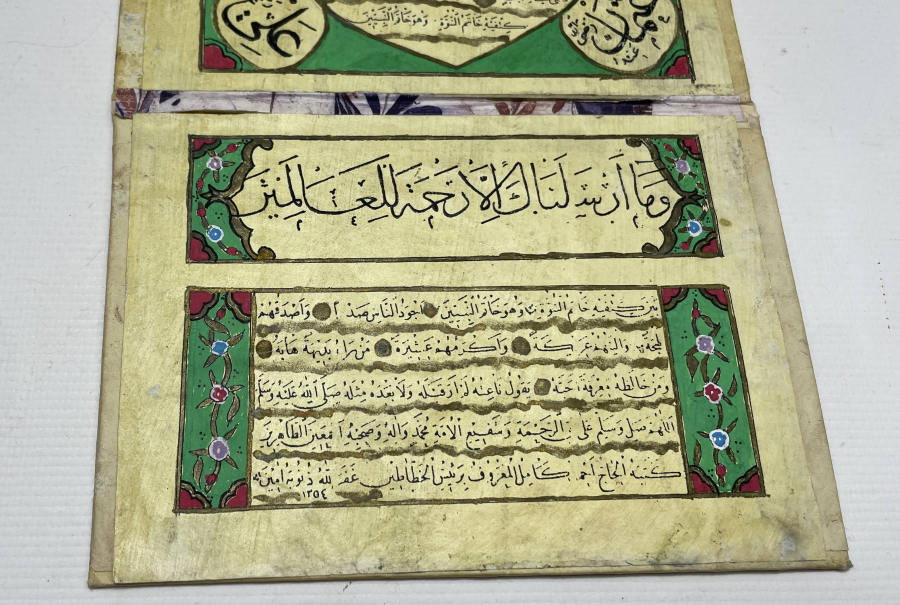 كتفيه خاتم النبوة وهو خاتم النبيين
عثمان رضي عنه
وما أرسلناك إلا رحمة للعالمين
بين كتفيه خاتم النبوة وهو خاتم النبيين أجود الناس صدرا وأصدقهم
لهجة وألينهم عريكة وأكرمهم عشيرة من رآه بديهة هابه
ومن خالطه معرفة أحبه يقول ناعته لم أر قبله ولا بعده مثله صلى الله عليه وسلم
اللهم صل وسلم على الرحمة وشفيع الأمة محمد وآله وصحبه أجمعين الطاهرين
كتبه الحاج أحمد كامل المعروف برئيس الخطاطين غفر الله ذنوبه آمين
١٣٥٤